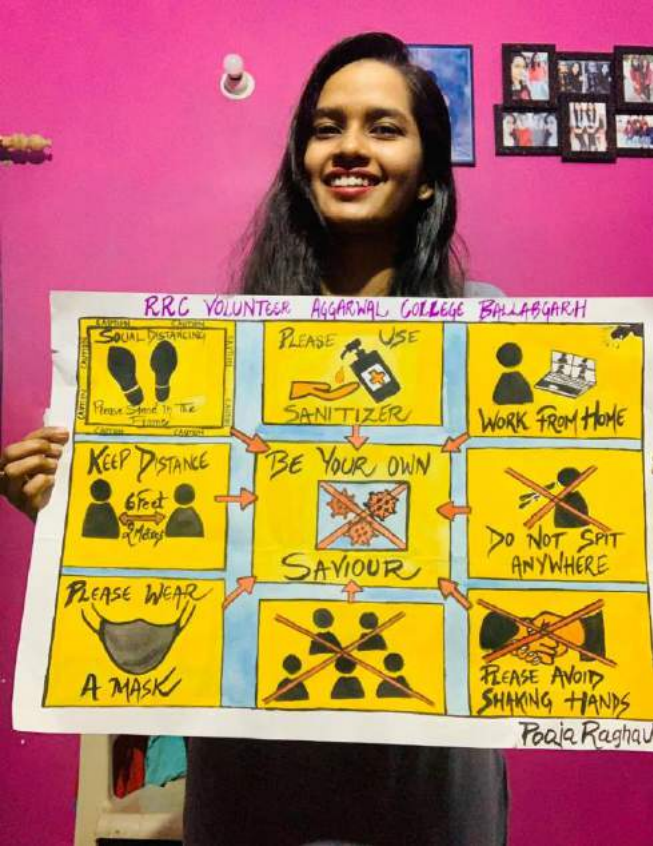 RRC VOLUNTEER AGGARWAL COLLEGE BALLABGARH
CAUTION CAUTION
CAUTION
CAUTION
SOCIAL DISTANCING
Please Stand In The
Frame
CAUTION CAUTION
PLEASE USE
SANITIZER
WORK FROM HOME
KEEP DISTANCE
6 Feet
2 Meters
BE YOUR OWN
SAVIOUR
DO NOT SPIT
ANYWHERE
PLEASE WEAR
A MASK
PLEASE AVOID
SHAKING HANDS
Pooja Raghav